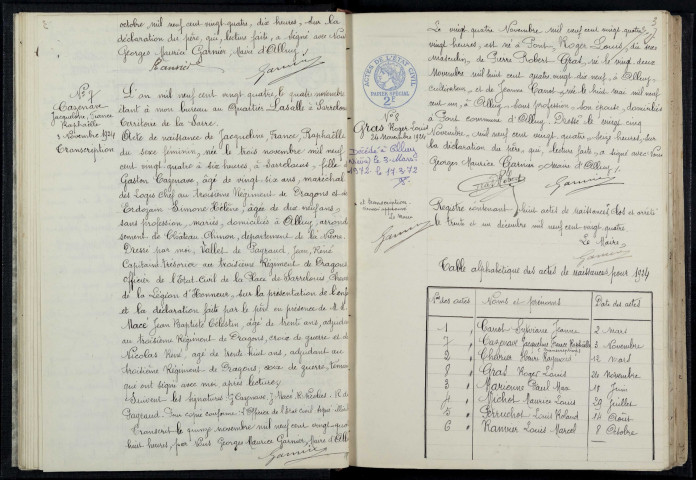 octobre mil neuf cent vingt quatre, dix heures, sur la
déclaration du père, qui, lecture faite, a signé avec Nous
Georges Maurice Garnier, Maire d'Alluy.
N° 7
Cazenave
Jacqueline, France
Raphaëlle
3 Novembre 1924
Transcription
L'an mil neuf cent vingt quatre, le quatre novembre
étant à mon bureau au Quartier Lasalle à Sarrelouis
Territoire de la Sarre.
Acte de naissance de Jacqueline France Raphaëlle
du sexe féminin, née le trois novembre mil neuf
cent vingt quatre à dix heures, à Sarrelouis, fille de
Gaston Cazenave, âgé de vingt six ans, maréchal
des Logis chef au troisième Régiment de Dragons et de
Simone Hélène, âgée de dix neuf ans,
sans profession, mariés, domiciliés à Alluy, arrondis
sement de Château Chinon, département de la Nièvre.
Dressé par moi, Vallet de Payraud, Jean, René
Capitaine trésorier au troisième Régiment de Dragons
officier de l'Etat-Civil de la Place de Sarrelouis, Chevalier
de la Légion d'Honneur, sur la présentation de l'enfant
et la déclaration faite par le père en présence de M.M.
Macé Jean Baptiste Célestin, âgé de trente ans, adjudant
au troisième Régiment de Dragons, croix de guerre, et de
Nicolas René, âgé de trente huit ans, adjudant au
troisième Régiment de Dragons, croix de guerre, témoins
qui ont signé avec moi après lecture
Suivent les signatures
Pour copie conforme
Transcrit le quinze novembre mil neuf cent vingt quatre
huit heures, par Nous Georges Maurice Garnier, Maire d'Alluy
3
ACTES DE L'ÉTAT CIVIL
PAPIER SPÉCIAL
2F
N° 8
Gras Roger Louis
24 Novembre 1924
Décédé à Alluy
(Nièvre) le 3 Mars
1972. le 17.3.72
Le Maire
Le vingt quatre Novembre mil neuf cent vingt quatre
vingt heures, est né à Pont, Roger Louis, du sexe
masculin, de Pierre Robert Gras, né le vingt deux
Novembre mil huit cent quatre vingt dix neuf, à Alluy,
cultivateur, et de Jeanne Carot, née le huit mai mil neuf
cent un, à Alluy, sans profession, son épouse, domiciliés
à Pont commune d'Alluy. Dressé le vingt cinq
Novembre, mil neuf cent vingt quatre, heures, sur
la déclaration du père, qui, lecture faite, a signé avec Nous
Georges Maurice Garnier, maire d'Alluy.
Registre contenant huit actes de naissances clos et arrêté
le trente et un décembre mil neuf cent vingt quatre.
Le Maire
Table alphabétique des actes de naissances pour 1924
N° des actes Noms et Prénoms Date des actes
1 Carot Sylviane Jeanne 2 mars
7 Cazenave Jacqueline France Raphaëlle 3 Novembre
(transcription)
2 Charier Henri Raymond 12 mars
8 Gras Roger Louis 24 Novembre
3 Marioux Paul Max 18 Juin
4 Michot Maurice Louis 29 Juillet
5 Perruchot Louis Roland 14 Août
6 Rannier Louis Marcel 8 Octobre